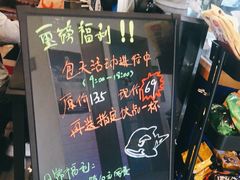 重磅福利!!
包天活动进行中
(9:00-18:00)
原价135 现价69
再送指定饮品一杯